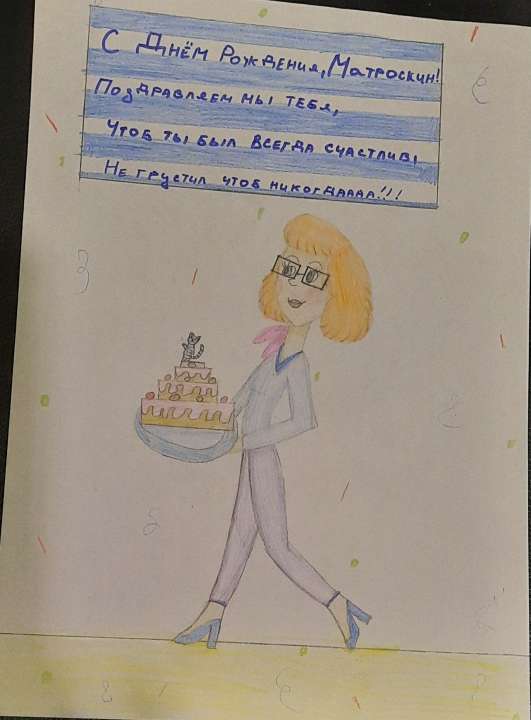 С Днём Рождения, Матроскин!
Поздравляем мы тебя,
Чтоб ты был всегда счастлив,
Не грустил чтоб никогдаааа!!!